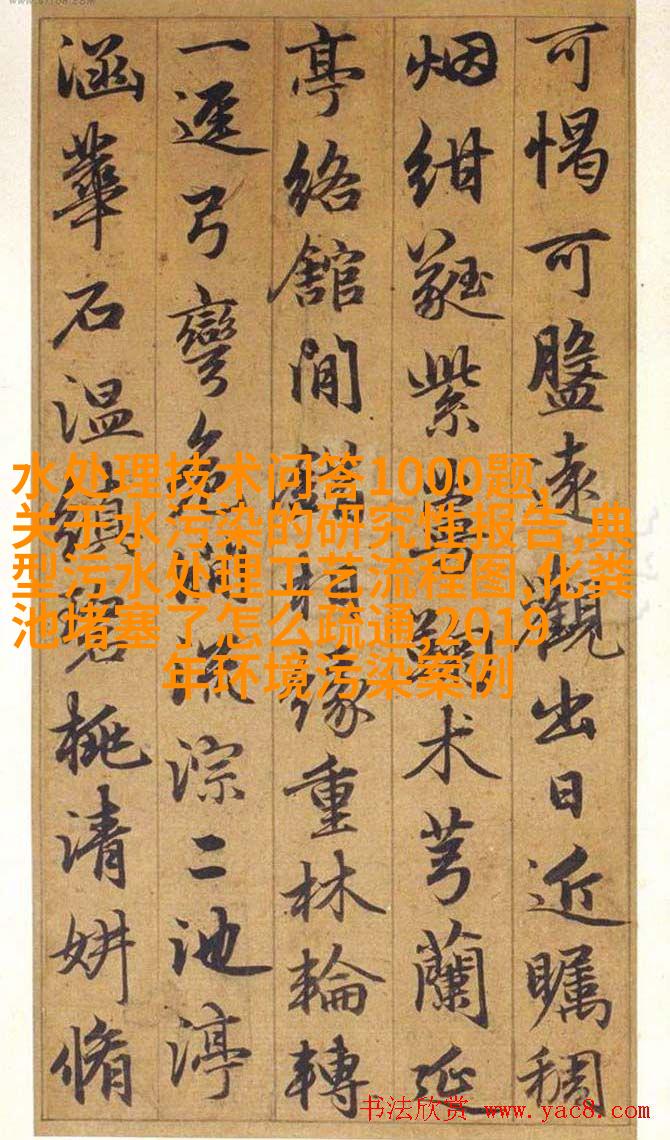 可愒可盬遠觀出日近矚稠
烟紺蕤紫萼㔉术芎蘭延
亭絡館間緣重林輪轉
一逕弓彎流淙二池渟
涵華石溫桃清姸脩
水处理技术问答1000题,
关于水污染的研究性报告,典
型污水处理工艺流程图,化粪
池堵塞了怎么疏通,2019
年环境污染案例
书法欣赏 www.yac8.com